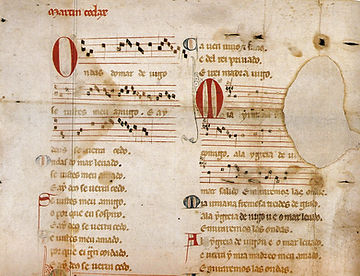 Martin codax
Ondas do mar de uigo
se uistes meu amigo. E ay
deus se uerra cedo.
Ondas do mar leuado.
se uistes meu amado.
E ay deus se uerra cedo.
Se uistes meu amigo.
o por que eu sospiro.
E ay deus se uerra cedo.
Se uistes meu amado
por que ei gran coidado.
E ay deus se uerra cedo.
Ca uen uiuo e sano.
e del rei priuado.
E irei madre a uigo
Mia yrmana
migo. a la ygreia de
mar salido. E miraremos las ondas.
Mia irmana fremosa treides de grado.
a la ygreia de uigo u e o mar leuado.
E miraremos las ondas
A la ygreia de uigo u e o
e uerra y mia madre
E miraremos las ondas